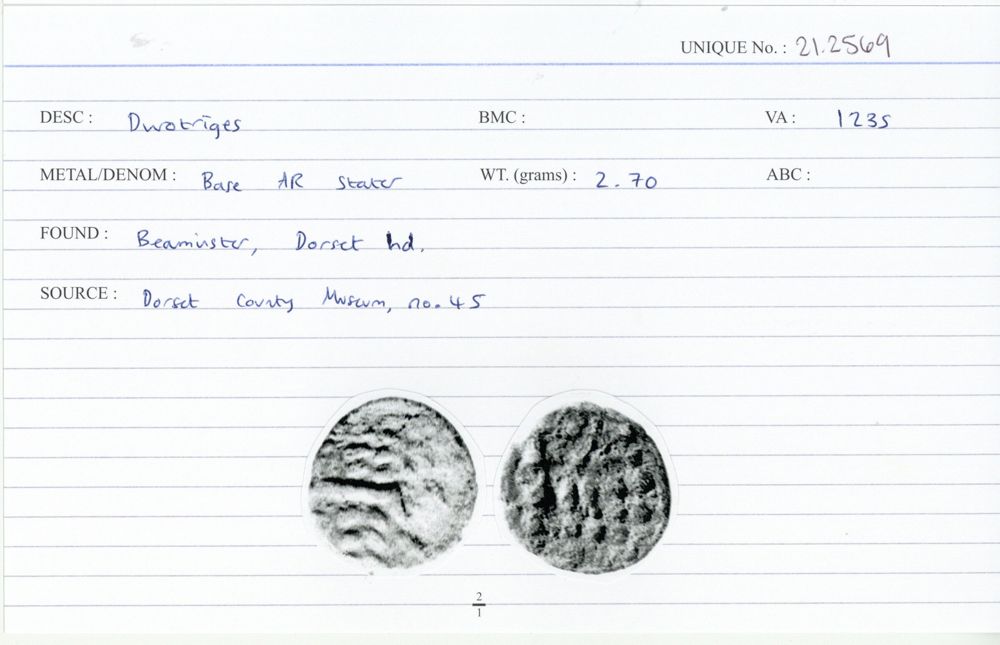 UNIQUE No. : 21.2569
DESC : Durotriges BMC : VA : 1235
METAL/DENOM : Base AR stater WT. (grams) : 2.70 ABC :
FOUND : Beaminster, Dorset hd.
SOURCE : Dorset County Museum, no. 45
2
1